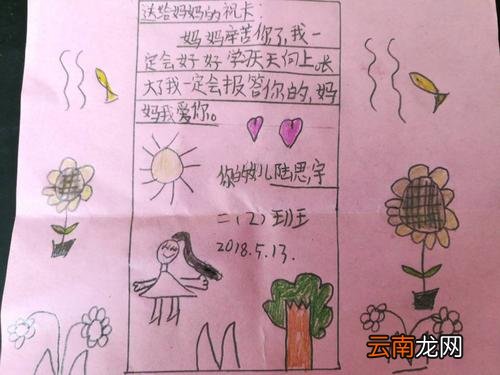 送给妈妈的祝卡:
妈妈辛苦你了,我一
定会好好学庆天向上。长
大了我一定会报答你的,妈
妈我爱你。
你的女儿陆思宇
二(2)班
2018.5.13.
云南龙网